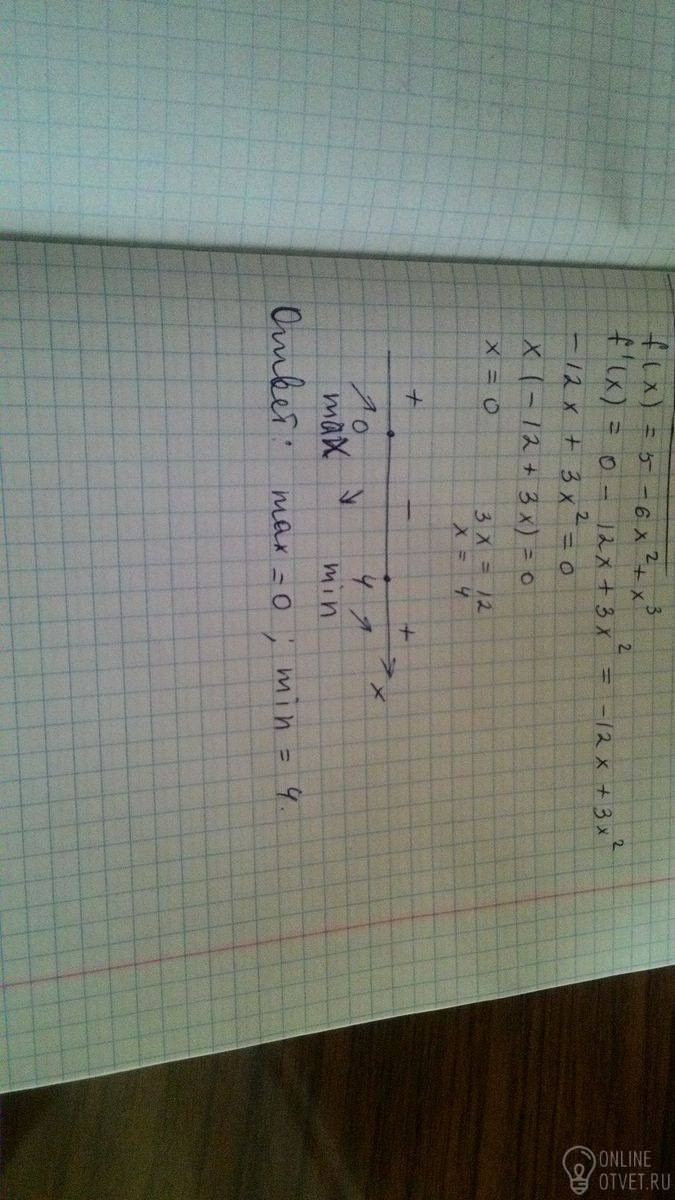 f(x) = 5 - 6x² + x³
f'(x) = 0 - 12x + 3x² = -12x + 3x²
-12x + 3x² = 0
x(-12 + 3x) = 0
x = 0 3x = 12
x = 4
+ - +
↗ 0 ↘ 4 ↗ x
max min
Ответ: max = 0; min = 4.
ONLINE
OTVET.RU